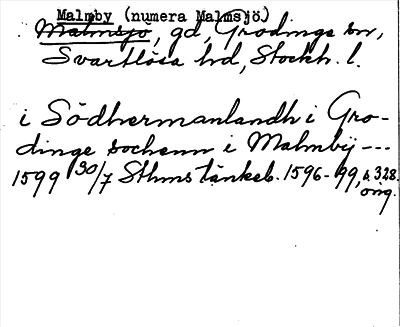 Malmby (numera Malmsjö.)
Malmsjö, gd, Grödinge sn,
Svartlösa hd, Stockh. l.
i Södhermanlandh i Gro-
dinge sochenn i Malmbÿ ---
1599 30/7 Sthms tänkeb. 1596-99, s. 328.
orig.